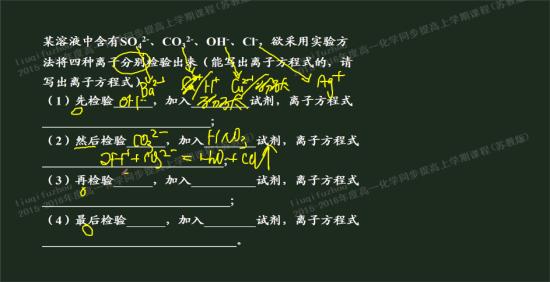 某溶液中含有SO₄²⁻、CO₃²⁻、OH⁻、Cl⁻，欲采用实验方
法将四种离子分别检验出来（能写出离子方程式的，请
写出离子方程式） Ba²⁺ H⁺ Ag⁺
（1）先检验 OH⁻，加入 试剂，离子方程式
；
（2）然后检验 CO₃²⁻，加入 HNO₃ 试剂，离子方程式
（3）再检验，加入试剂，离子方程式
；
（4）最后检验，加入试剂，离子方程式
。
liuqifuzhou
2015-2016年度高一化学同步提高上学期课程（苏教版）